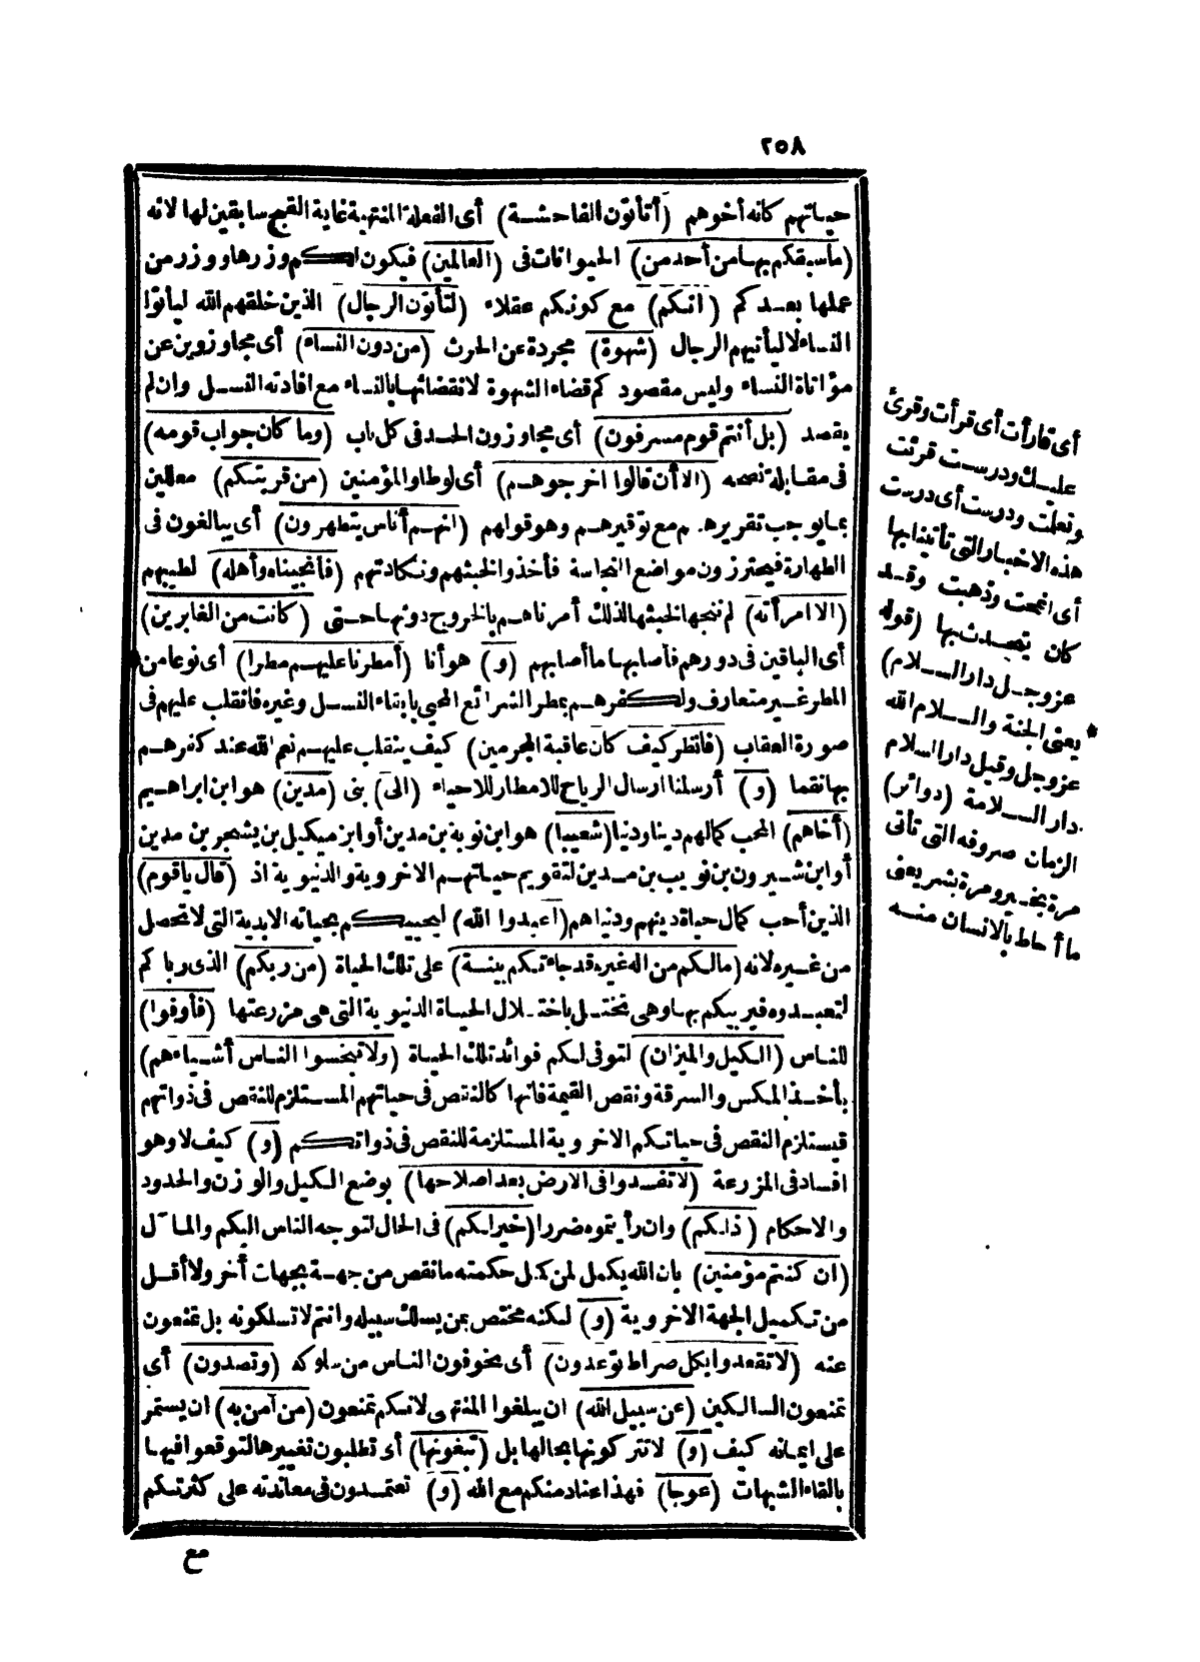 ٢٥٨
حياتهم كانه أخوهم (أتأتون الفاحشة) أى الفعلة المنتهية غاية القبح سابقين لها لانه
(ما سبقكم بها من أحد من) الحيوانات فى (العالمين) فيكون لكم وزرها ووزر من
عملها بعدكم (انكم) مع كونكم عقلاء (لتأتون الرجال) الذين خلقهم الله ليأتوا
النساء لا ليأتيهم الرجال (شهوة) مجردة عن الحرث (من دون النساء) أى مجاوزين عن
مؤاتاة النساء وليس مقصودكم قضاء الشهوة لانقضائها بالنساء مع افادته النسل وان لم
يقصد (بل أنتم قوم مسرفون) أى مجاوزون الحد فى كل باب (وما كان جواب قومه)
فى مقابلة نصحه (الا أن قالوا اخرجوهم) أى لوطا والمؤمنين (من قريتكم) معللين
بما يوجب تقريرهم مع توقيرهم وهو قولهم (انهم أناس يتطهرون) أى يبالغون فى
الطهارة فيحترزون مواضع النجاسة فأخذوا لخبثهم ونكادتهم (فأنجيناه وأهله) لطيبهم
(الا امرأته) لم ننجها لخبثها لذلك أمرناهم بالخروج دونها حتى (كانت من الغابرين)
أى الباقين فى دورهم فأصابها ما أصابهم (و) هو أنا (أمطرنا عليهم مطرا) أى نوعا من
المطر غير متعارف ولكفرهم بمطر الشرائع المحيى بابقاء النسل وغيره فانقلب عليهم فى
صورة العقاب (فانظر كيف كان عاقبة المجرمين) كيف ينقلب عليهم نعم الله عند كفرهم
بها نقما (و) أرسلنا ارسال الرياح للامطار للاحياء (الى) بنى (مدين) هو ابن ابراهيم
(أخاهم) المحب كمالهم دينا ودنيا (شعيبا) هو ابن نوبة بن مدين أو ابن ميكيل بن يشجر بن مدين
أو ابن شيرون بن نويب بن مدين لتقويم حياتهم الاخروية والدنيوية اذ (قال ياقوم)
الذين أحب كمال حياة دينهم ودنياهم (اعبدوا الله) ليحييكم بحياته الابدية التى لا تحصل
من غيره لانه (مالكم من اله غيره قد جاءتكم بينة) على تلك الحياة (من ربكم) الذى رباكم
لتعبدوه فيربيكم بها وهى تختل باختلال الحياة الدنيوية التى هى مزرعتها (فأوفوا)
للناس (الكيل والميزان) لتوفى لكم فوائد تلك الحياة (ولا تبخسوا الناس أشياءهم)
بأخذ المكس والسرقة ونقص القيمة فانها كالنقص فى حياتهم المستلزم للنقص فى ذواتهم
فيستلزم النقص فى حياتكم الاخروية المستلزمة للنقص فى ذواتكم (و) كيف لا وهو
افساد فى المزرعة (لا تفسدوا فى الارض بعد اصلاحها) بوضع الكيل والوزن والحدود
والاحكام (ذلكم) وان رأيتموه ضررا (خير لكم) فى الحال لتوجه الناس اليكم والمآل
(ان كنتم مؤمنين) بان الله يكمل لمن كمل حكمته ما نقص من جهة بجهات أخر ولا أقل
من تكميل الجهة الاخروية (و) لكنه مختص بمن يسلك سبيله وانتم لا تسلكونه بل تمنعون
عنه (لا تقعدوا بكل صراط توعدون) أى يخوفون الناس من سلوكه (وتصدون) أى
تمنعون السالكين (عن سبيل الله) ان يبلغوا المنتهى لانكم تمنعون (من آمن به) ان يستمر
على ايمانه كيف (و) لا تتركونها بحالها بل (تبغونها) أى تطلبون تغييرها لتوقعوا فيها
بالقاء الشبهات (عوجا) فهذا عناد منكم مع الله (و) تعتمدون فى معاندته على كثرتكم
مع
أى قارأت أى قرأت وقرئ
عليك ودرست قرئت
وتعلمت ودرست أى درست
هذه الاخبار التى تأتينا بها
أى امحت وذهبت وقد
كان يتحدث بها (قوله
عز وجل دار السلام)
يعنى الجنة والسلام الله
عز وجل وقيل دار السلام
دار السلامة (دوائر)
الزمان صروفه التى تأتى
مرة بخير ومرة بشر يعنى
ما أحاط بالانسان منه